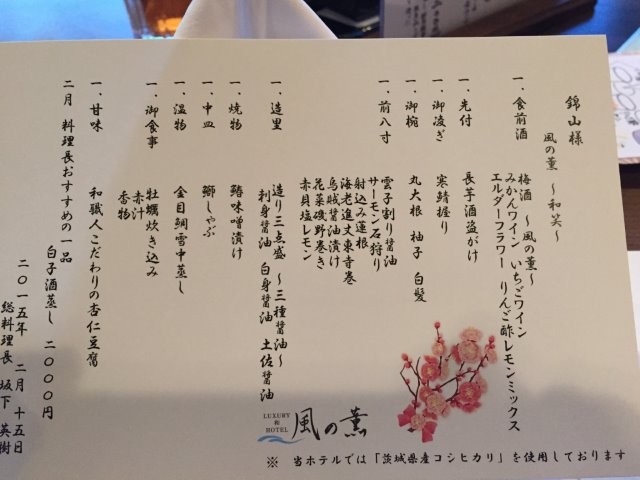 錦山様
風の薫 ～和笑～
一、食前酒
梅酒 ～風の薫～
みかんワイン いちごワイン
エルダーフラワー りんご酢レモンミックス
一、先付
長芋酒盗がけ
一、御凌ぎ
寒鯖握り
一、御椀
丸大根 柚子 白髪
一、前八寸
雲子割り醤油
サーモン石狩り
射込み蓮根
海老進丈東寺巻
烏賊醤油漬け
花菜磯野巻き
赤貝塩レモン
一、造里
造り三点盛 ～三種醤油～
刺身醤油 白身醤油 土佐醤油
一、焼物
鰆味噌漬け
一、中皿
鰤しゃぶ
一、温物
金目鯛雪中蒸し
一、御食事
牡蠣炊き込み
赤汁
香物
一、甘味
和職人こだわりの杏仁豆腐
二月 料理長おすすめの一品
白子酒蒸し 二〇〇〇円
二〇一五年 二月 十五日
総料理長 坂下 英樹
LUXURY
和
HOTEL
風の薫
※ 当ホテルでは「茨城県産コシヒカリ」を使用しております